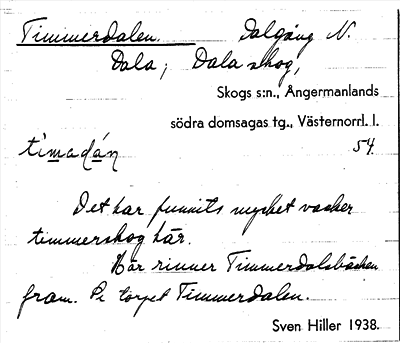 Timmerdalen. Dalgång N.
Dala, Dala skog,
Skogs s:n., Ångermanlands
södra domsagas tg., Västernorrl. l.
timadán 54.
Det har funnits mycket vacker
timmerskog här.
Här rinner Timmerdalsbäcken
fram. Se torpet Timmerdalen.
Sven Hiller 1938.